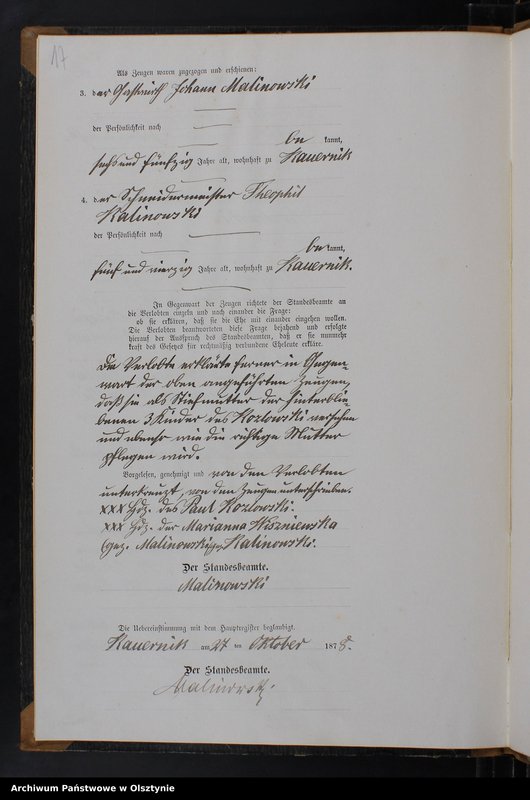 17
Als Zeugen waren zugezogen und erschienen:
3. der Gastwirth Johann Malinowski
der Persönlichkeit nach
be kannt,
sechs und fünfzig Jahre alt, wohnhaft zu Kauernik
4. der Schneidermeister Theophil
Kalinowski
der Persönlichkeit nach
be kannt,
fünf und vierzig Jahre alt, wohnhaft zu Kauernik.
In Gegenwart der Zeugen richtete der Standesbeamte an
die Verlobten einzeln und nach einander die Frage:
ob sie erklären, daß sie die Ehe mit einander eingehen wollen.
Die Verlobten beantworteten diese Frage bejahend und erfolgte
hierauf der Ausspruch des Standesbeamten, daß er sie nunmehr
kraft des Gesetzes für rechtmäßig verbundene Eheleute erkläre.
Die Verlobte erklärte ferner in Gegen-
wart der oben angeführten Zeugen,
daß sie als Stiefmutter der hinterblie-
benen 3 Kinder des Kozlowski
und wie die richtige Mutter
pflegen wird.
Vorgelesen, genehmigt und von den Verlobten
unterkreuzt, von den Zeugen unterschrieben.
XXX Hdz. des Paul Kozlowski.
XXX Hdz. der Marianna Wiszniewska
(gez. Malinowski, gez. Kalinowski.
Der Standesbeamte.
Malinowski
Die Uebereinstimmung mit dem Hauptregister beglaubigt.
Kauernik am 27 ten Oktober 1878.
Der Standesbeamte.
Malinowski.
Archiwum Państwowe w Olsztynie